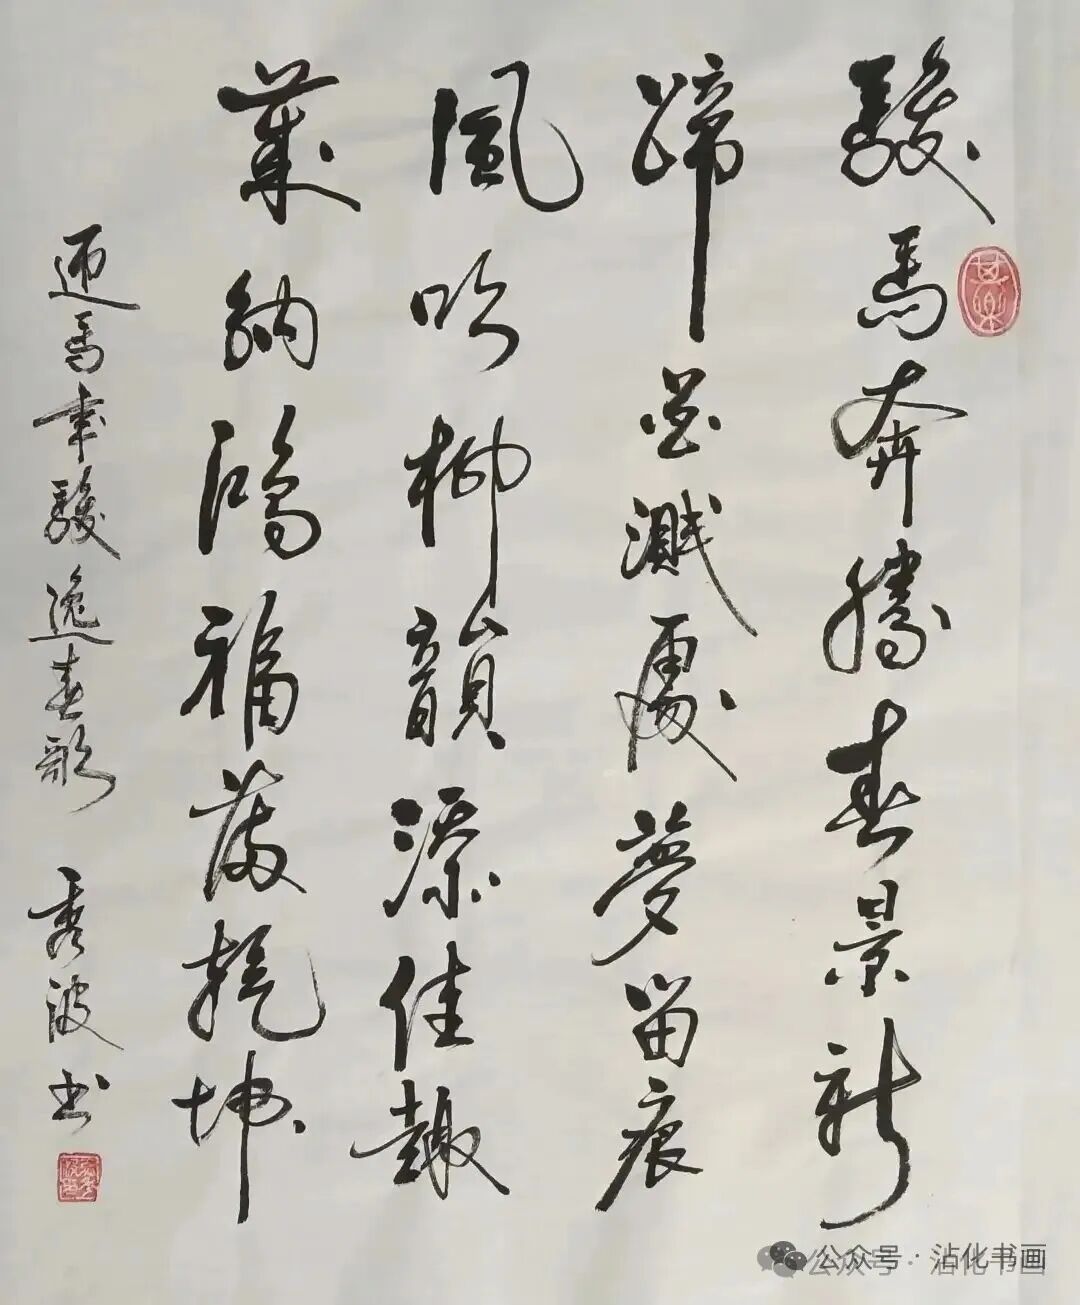 駿馬奔騰春景新
蹄濺處夢留痕
風吹柳韻添佳趣
歲納鴻福蔭乾坤
迎馬年駿逸春歌 秀波书
公众号 · 沾化书画